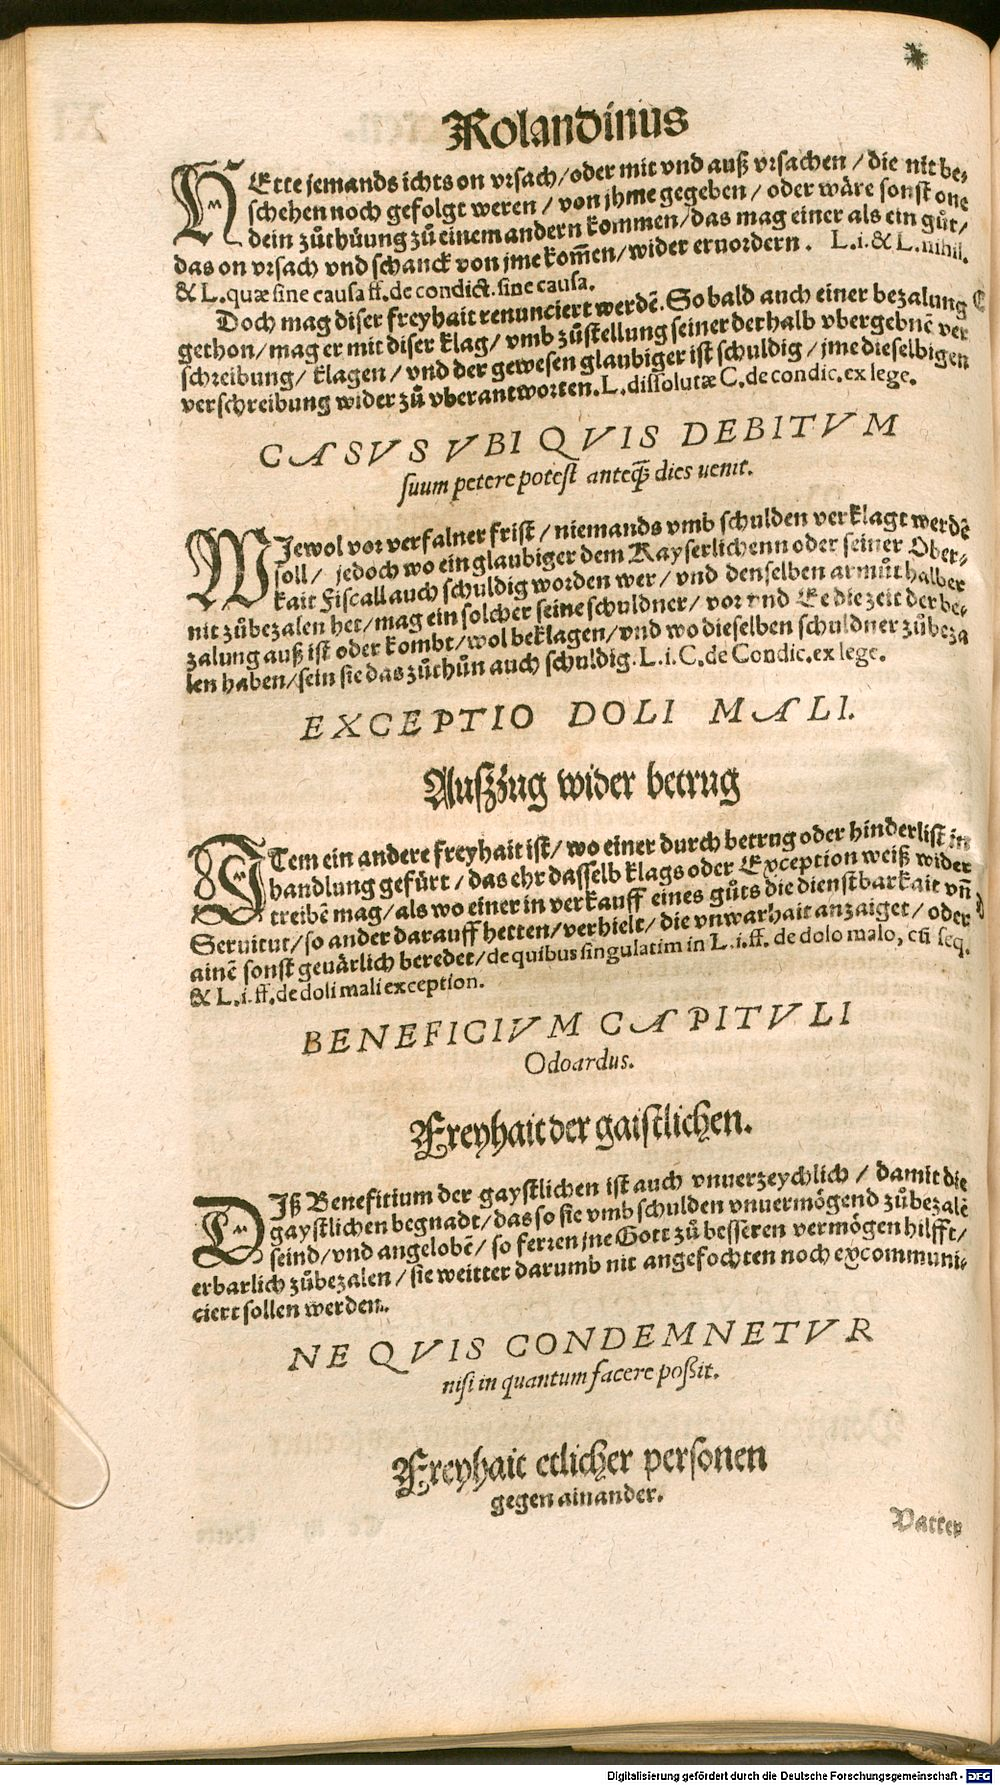 Rolandinus
HEtte jemands ichts on vrsach/oder mit vnd auß vrsachen / die nit be⸗
schehen noch gefolgt weren / von jhme gegeben / oder wäre sonst one
dein zůthůung zů einem andern kommen/das mag einer als ein gůt/
das on vrsach vnd schanck von jme kom̄en/wider eruordern. L.i.& L.nihil.
& L.quæ sine causa ff.de condict.sine causa.
Doch mag diser freyhait renunciert werdē. So bald auch einer bezalung
gethon/mag er mit diser klag/ vmb zůstellung seiner derhalb vbergebnē ver
schreibung/ klagen / vnd der gewesen glaubiger ist schuldig / jme dieselbigen
verschreibung wider zů vberantworten.L.dissolutæ C.de condic.ex lege.
CASVS VBI QVIS DEBITVM
suum petere potest anteq̃ dies uenit.
WJewol vor verfalner frist / niemands vmb schulden verklagt werdē
soll / jedoch wo ein glaubiger dem Kayserlichenn oder seiner Ober⸗
kait Fiscall auch schuldig worden wer / vnd denselben armůt halber
nit zůbezalen het/mag ein solcher seine schuldner/ vor vnd Ee die zeit der be⸗
zalung auß ist oder kombt/wol beklagen/vnd wo dieselben schuldner zůbeza
len haben/sein sie das zůthůn auch schuldig. L.i.C.de Condic.ex lege.
EXCEPTIO DOLI MALI.
Auszzug wider betrug
JTem ein andere freyhait ist/ wo einer durch betrug oder hinderlist in
handlung gefürt / das ehr dasselb klags oder Exception weiß wider
treibē mag/als wo einer in verkauff eines gůts die dienstbarkait vn̄
Seruitut/so ander darauff hetten/verhielt/ die vnwarhait anzaiget/ oder
ainē sonst geuärlich beredet/de quibus singulatim in L.i.ff. de dolo malo, cū seq.
& L.i.ff.de doli mali exception.
BENEFICIVM CAPITVLI
Odoardus.
Freyhait der gaistlichen.
DJß Benefitium der gaystlichen ist auch vnuerzeychlich / damit die
gaystlichen begnadt/das so sie vmb schulden vnuermögend zůbezalē
seind/vnd angelobē/ so ferren jne Gott zů besseren vermögen hilfft/
erbarlich zůbezalen / sie weitter darumb nit angefochten noch excommuni⸗
ciert sollen werden.
NE QVIS CONDEMNETVR
nisi in quantum facere poßit.
Freyhait etlicher personen
gegen ainander.
Vatter
Digitalisierung gefördert durch die Deutsche Forschungsgemeinschaft - DFG